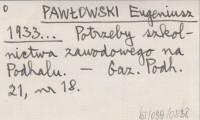 0
PAWŁOWSKI Eugeniusz
1933... Potrzeby szkol-
nictwa zawodowego na
Podhalu. — Gaz. Podh.
21, nr 18.